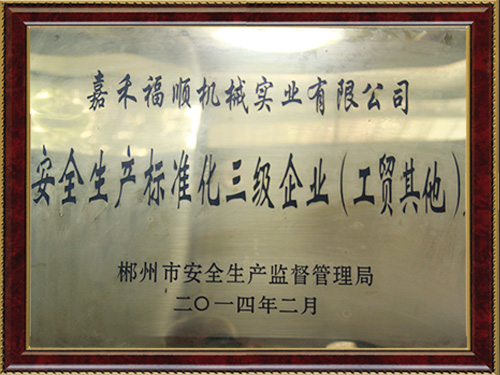 嘉禾福顺机械实业有限公司
安全生产标准化三级企业(工贸其他)
郴州市安全生产监督管理局
二〇一四年二月